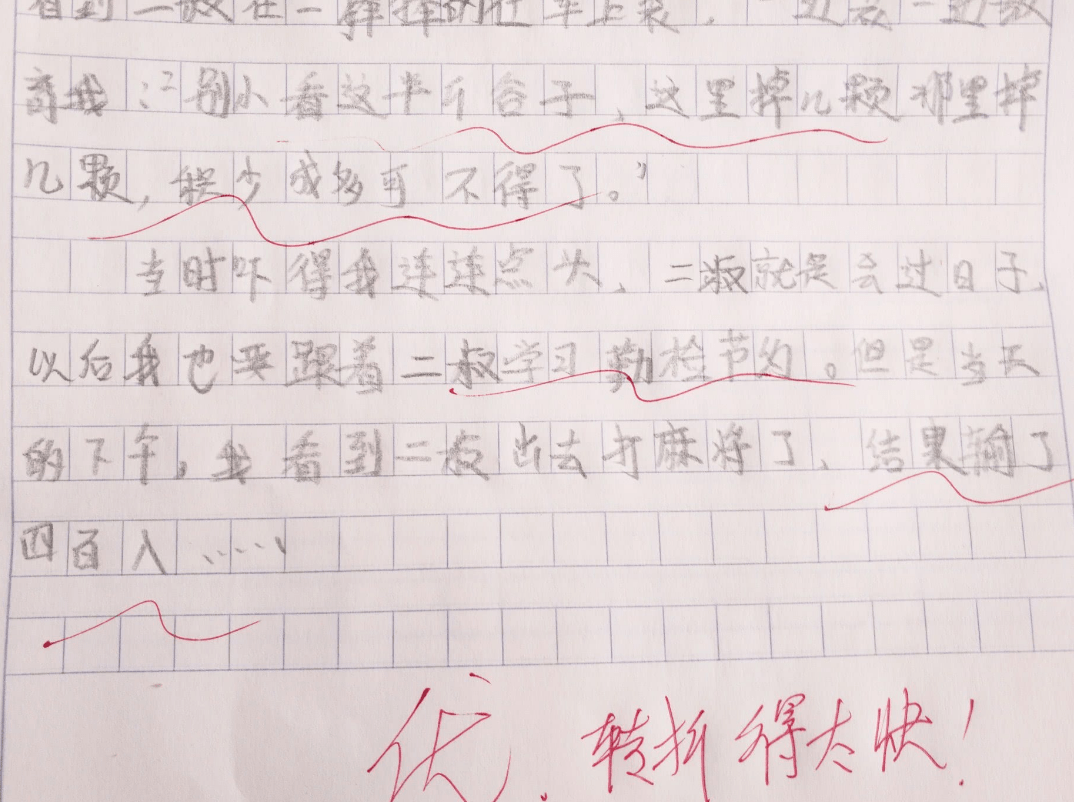 看到二叔在一 的 车上装，一边装一边教
育我：“别小看这半斤谷子，这里掉几颗那里掉
几颗，积少成多可不得了。”
当时吓得我连连点头，二叔就是会过日子，
以后我也要跟着二叔学习勤检节约。但是当天
的下午，我看到二叔出去打麻将了，结果输了
四百八……
优．转折得太快！